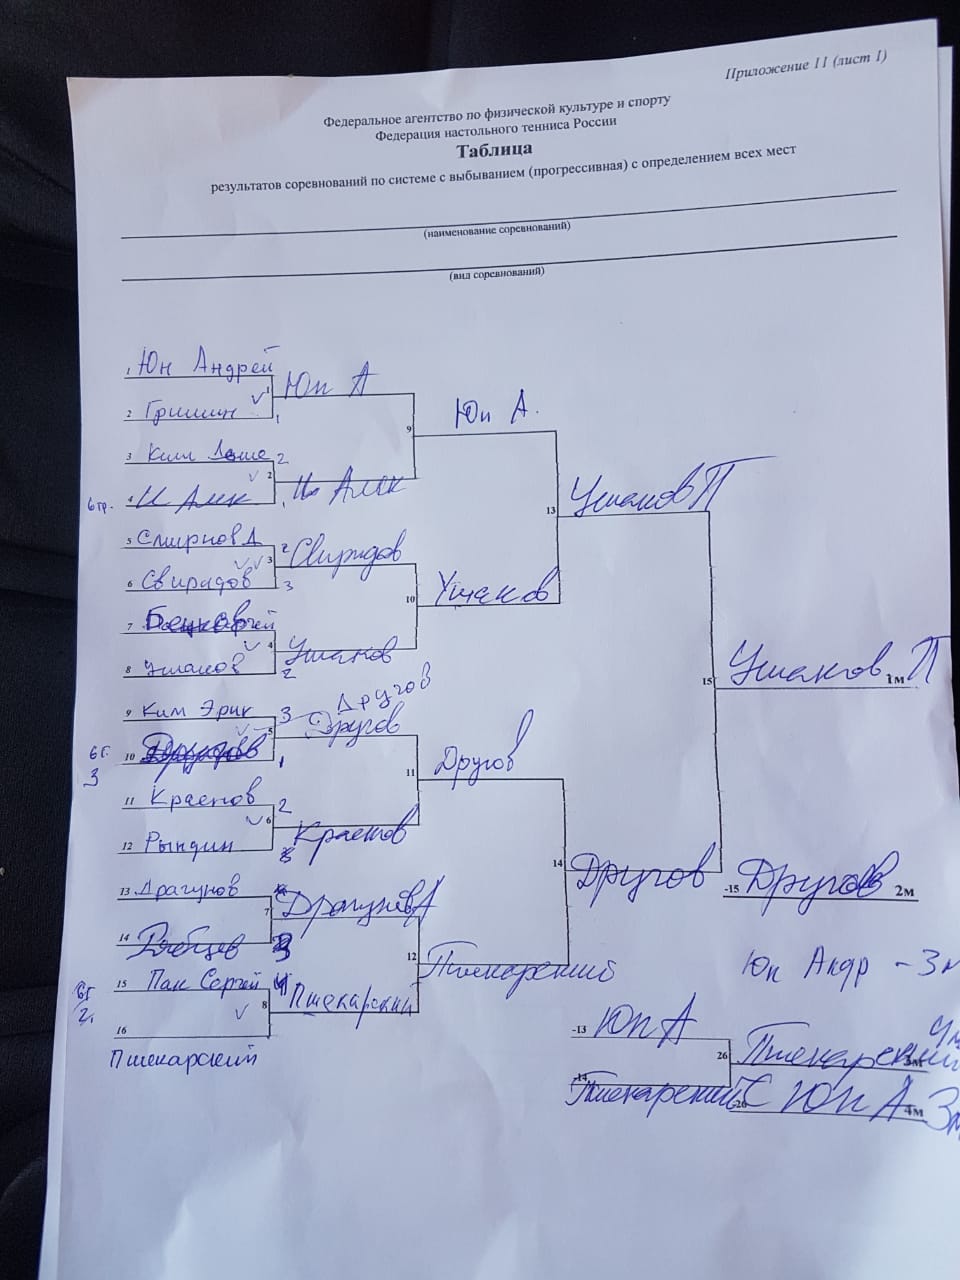 Приложение 11 (лист 1)
Федеральное агентство по физической культуре и спорту
Федерация настольного тенниса России
Таблица
результатов соревнований по системе с выбыванием (прогрессивная) с определением всех мест
(наименование соревнований)
(вид соревнований)
1 Юн Андрей
1 Юн А
2 Гришин 1
9 Юн А.
3 Ким 2
2 Алек
6 гр. 4 Алек
13 Ушаков П
5 Смирнов Д 2
3 Свиридов
6 Свиридов 3
10 Ушаков
7
4 Ушаков
8 Ушаков 2
15 Ушаков П 1м
9 Ким Эрик 3
Другов
5 Другов
6г. 3 10 1
11 Другов
11 Краснов 2
6 Краснов
12 Рындин
14 Другов
-15 Другов 2м
13 Драгунов
7 Драгунов А
14 Рябцев 3
12 Пшекарский
Юн Андр - 3м
6г 2. 15 Пак Сергей 4
8 Пшекарский
16
Пшекарский
-13 Юн А
26 Пшекарский 3м 4м
-14 Пшекарский С
-26 Юн А 4м 3м